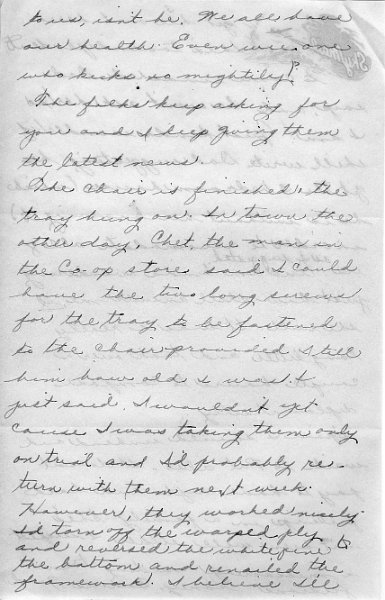 to us, isn't he. We all have
our health. Even wee one
who kicks so mightily!
The folks keep asking for
you and I keep giving them
the latest news.
The chair is finished, the
tray hung on. In town the
other day, Chet, the man in
the Co-op store said I could
have the two long screws
for the tray to be fastened
to the chair provided I tell
him how old I was. I
just said I wouldn't yet
cause I was taking them only
on trial and I'd probably re-
turn with them next week.
However, they worked nicely.
I'd torn off the warped ply
and reversed the white pine to
the bottom and renailed the
framework. I believe I'll